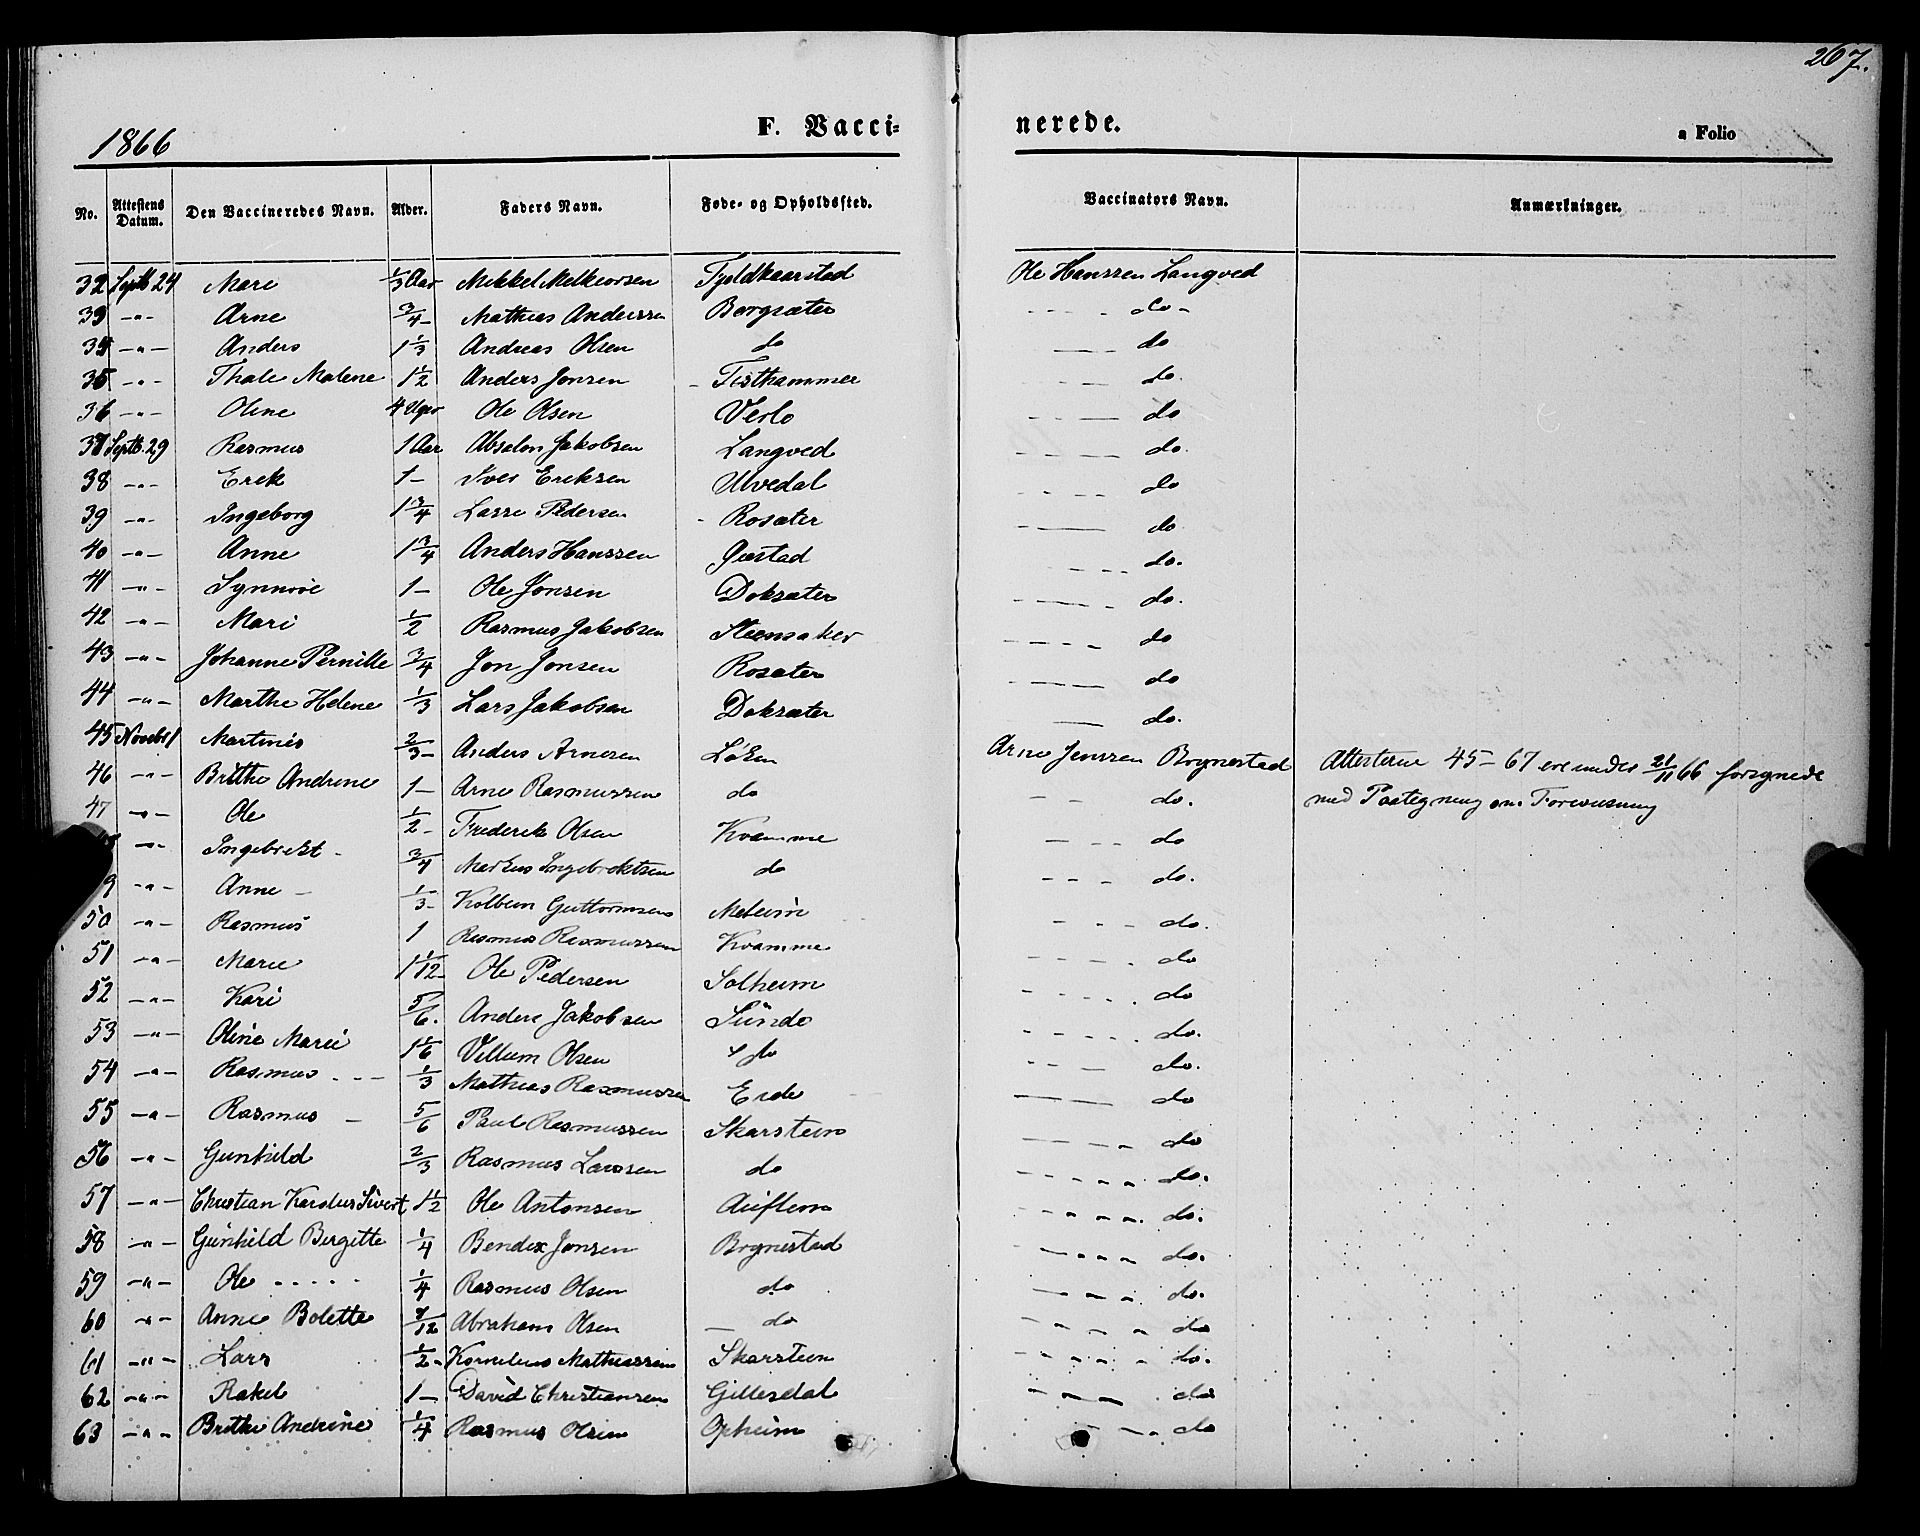 267.
1866
F. Vacci=
nerede.
a Folio
No. Attestens Datum. Den Vaccineredes Navn. Alder. Faders Navn. Føde- og Opholdssted. Vaccinators Navn. Anmærkninger.
32 Septb 24 Mari 1/3 Aar Mikkel Melkiorsen Tjeldkaarstad Ole Hanssen Langved
33 -"- Arne 3/4 - Mathias Anderssen Borgsæter - - - do -
34 -"- Anders 1 1/3 Andreas Olsen do do
35 -"- Thale Malene 1 1/2 Anders Jonsen Tisthammer do.
36 -"- Oline 4 Uger Ole Olsen Verlo do
37 Septb. 29 Rasmus 1 Aar Absalon Jakobsen Langved do.
38 -"- Erek 1 - Iver Ereksen Ulvedal do
39 -"- Ingeborg 1 3/4 Lasse Pedersen Rosæter do
40 -"- Anne 1 3/4 Anders Hanssen Gjestad do.
41 -"- Synnøve 1 - Ole Jonsen Doksæter do.
42 -"- Mari 1/2 Rasmus Jakobsen Steensaker do
43 -"- Johanne Pernille 3/4 Jon Jonsen Rosæter do
44 -"- Marthe Helene 1/3 Lars Jakobsen Doksæter do.
45 Novebr 1 Martines 2/3 - Anders Arnesen Løken Arne Jenssen Brynestad Attesterne 45-67 ere under 21/11 66 forsynede
46 -"- Brithe Andrine 1 - Arne Rasmussen do do. med Paategning om Forevisning
47 -"- Ole 1/2 - Frederik Olsen Kvamme do
-"- Ingebrekt - 3/4 Markus Ingebrektsen do do.
9 -"- Anne - 1/3 - Kolbein Guttormsen Meheim do.
50 -"- Rasmus 1 Rasmus Rasmussen Kvamme do
51 -"- Marie 1 1/12 - Ole Pedersen Solheim do
52 -"- Kari 5/6. Anders Jakobsen Sunde do.
53 -"- Oline Marie 1 1/6 Villum Olsen do do.
54 -"- Rasmus - - - 1/3 Mathias Rasmussen Eide do
55 -"- Rasmus - 5/6 Paul Rasmussen Skarstein do
56 -"- Gunhild 2/3 Rasmus Larssen do do.
57 -"- Christian Karolus Sivert 1 1/2 Ole Antonsen Auflem do.
58 -"- Gunhild Birgitte 1/4 Bendix Jonsen Brynestad do.
59 -"- Ole - - - - - 1/4 Rasmus Olsen do do.
60 -"- Anne Bolette 7/12 Abraham Olsen do do
61 -"- Lars 1/2 - Kornelius Mathiassen Skarstein do.
62 -"- Rakel 1 - David Christiansen Gillesdal do
63 -"- Brithe Andrine 1/4 Rasmus Olsen Opheim do